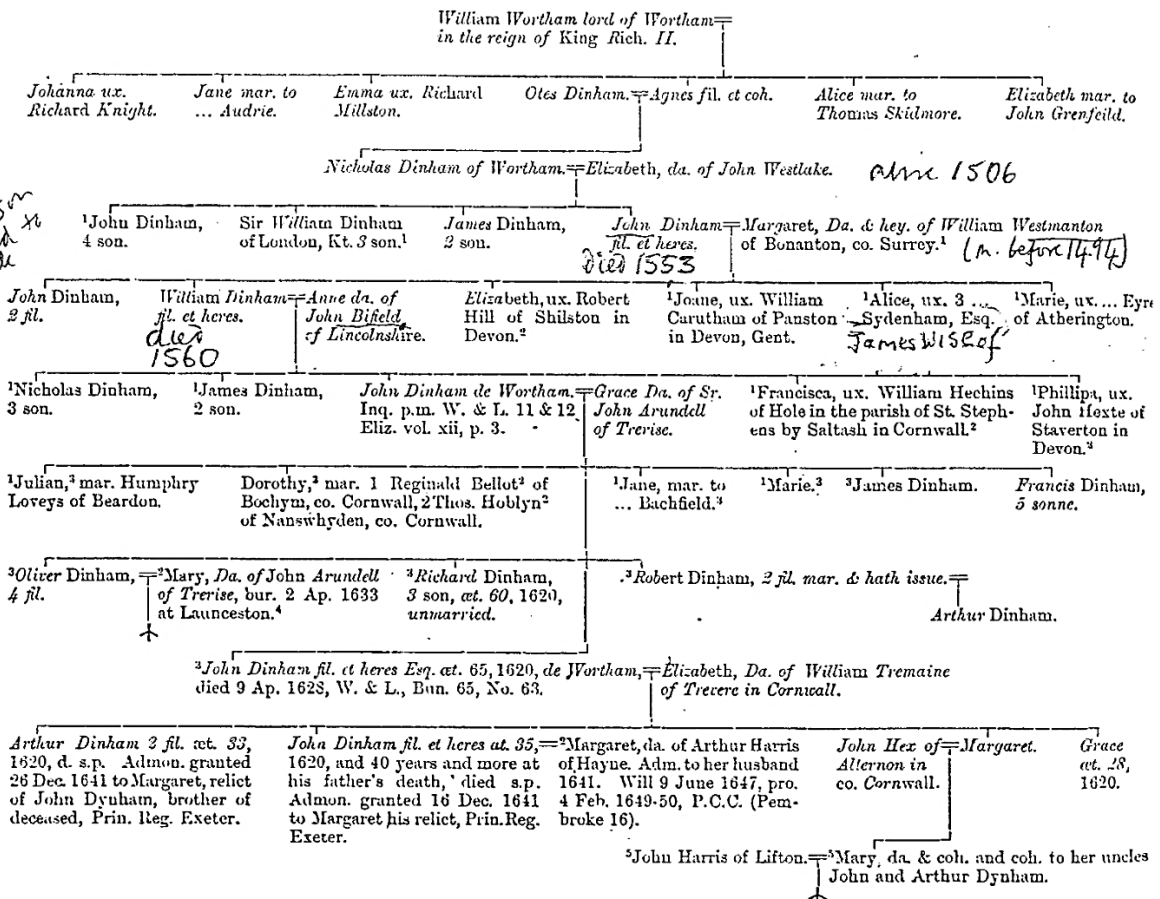 William Wortham lord of Wortham
in the reign of King Rich. II.
Johanna ux.
Richard Knight.
Jane mar. to
... Audrie.
Emma ux. Richard
Millston.
Otes Dinham. Agnes fil. et coh.
Alice mar. to
Thomas Skidmore.
Elizabeth mar. to
John Grenfeild.
Nicholas Dinham of Wortham. Elizabeth, da. of John Westlake.
alive 1506
¹John Dinham,
4 son.
Sir William Dinham
of London, Kt. 3 son.¹
James Dinham,
2 son.
John Dinham
fil. et heres.
died 1553
Margaret, Da. & hey. of William Westmanton
of Bonanton, co. Surrey.¹ (m. before 1494)
John Dinham,
2 fil.
William Dinham
fil. et heres.
died
1560
Anne da. of
John Bifield
of Lincolnshire.
Elizabeth, ux. Robert
Hill of Shilston in
Devon.²
¹Joane, ux. William
Carutham of Panston
in Devon, Gent.
¹Alice, ux. 3 ...
Sydenham, Esq.
James Wise of
¹Marie, ux. ... Eyre
of Atherington.
¹Nicholas Dinham,
3 son.
¹James Dinham,
2 son.
John Dinham de Wortham.
Inq. p.m. W. & L. 11 & 12
Eliz. vol. xii, p. 3.
Grace Da. of Sr.
John Arundell
of Trerise.
¹Francisca, ux. William Hechins
of Hole in the parish of St. Steph-
ens by Saltash in Cornwall.²
¹Phillipa, ux.
John Hexte of
Staverton in
Devon.²
¹Julian,³ mar. Humphry
Loveys of Beardon.
Dorothy,² mar. 1 Reginald Bellot² of
Bochym, co. Cornwall, 2 Thos. Hoblyn²
of Nanswhyden, co. Cornwall.
¹Jane, mar. to
... Bachfield.³
¹Marie.³
³James Dinham.
Francis Dinham,
5 sonne.
³Oliver Dinham,
4 fil.
²Mary, Da. of John Arundell
of Trerise, bur. 2 Ap. 1633
at Launceston.⁴
³Richard Dinham,
3 son, æt. 60, 1620,
unmarried.
³Robert Dinham, 2 fil. mar. & hath issue.
Arthur Dinham.
³John Dinham fil. et heres Esq. æt. 65, 1620, de Wortham,
died 9 Ap. 1628, W. & L., Bun. 65, No. 63.
Elizabeth, Da. of William Tremaine
of Trecere in Cornwall.
Arthur Dinham 2 fil. æt. 33,
1620, d. s.p. Admon. granted
26 Dec. 1641 to Margaret, relict
of John Dynham, brother of
deceased, Prin. Reg. Exeter.
John Dinham fil. et heres æt. 35,
1620, and 40 years and more at
his father's death, died s.p.
Admon. granted 16 Dec. 1641
to Margaret his relict, Prin. Reg.
Exeter.
²Margaret, da. of Arthur Harris
of Hayne. Adm. to her husband
1641. Will 9 June 1647, pro.
4 Feb. 1649-50, P.C.C. (Pem-
broke 16).
John Hex of
Alternon in
co. Cornwall.
Margaret.
Grace
æt. 28,
1620.
⁵John Harris of Lifton.
⁵Mary, da. & coh. and coh. to her uncles
John and Arthur Dynham.